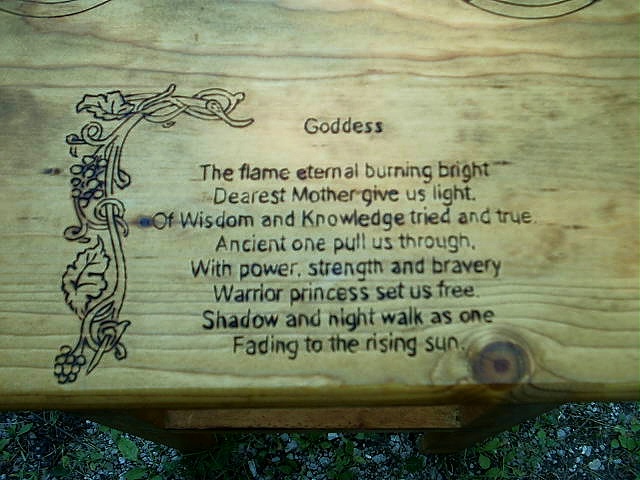 Goddess
The flame eternal burning bright
Dearest Mother give us light.
Of Wisdom and Knowledge tried and true.
Ancient one pull us through,
With power, strength and bravery
Warrior princess set us free.
Shadow and night walk as one
Fading to the rising sun.